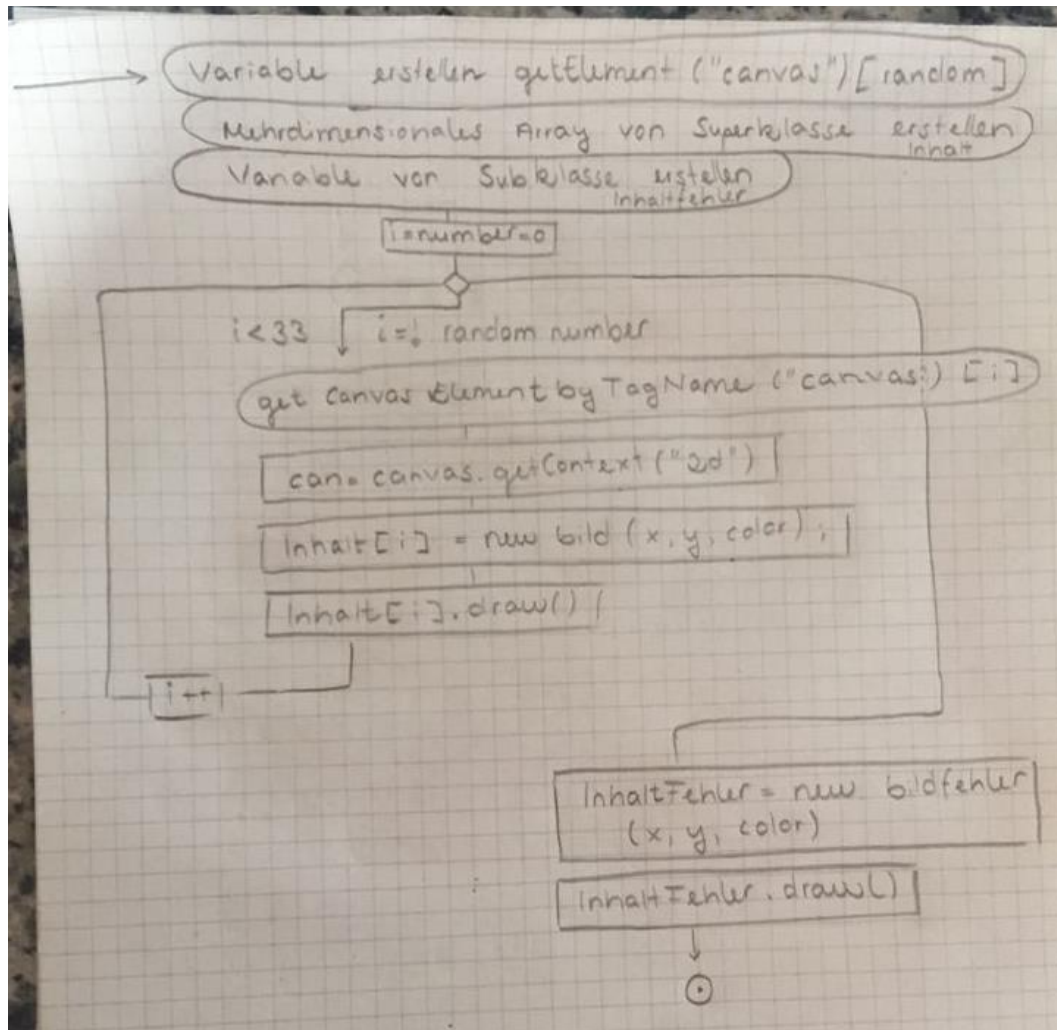 Variable erstellen getElement ("canvas") [random]
Mehrdimensionales Array von Superklasse erstellen
Inhalt
Variable von Subklasse erstellen
Inhaltfehler
i=number=0
i<33 i=! random number
get Canvas Element by TagName ("canvas") [i]
can= canvas.getContext ("2d")
Inhalt[i] = new bild (x, y, color);
Inhalt[i].draw()
i++
InhaltFehler = new bildfehler
(x, y, color)
InhaltFehler.draw()